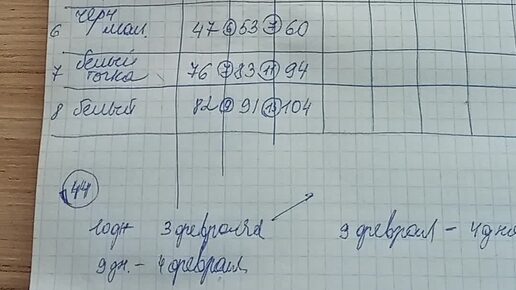 6 черн мал. 47 6 53 7 60
7 белый точка 76 7 83 11 94
8 белый 82 9 91 13 104
44
10дн 3 февраля 9 феврал - 4 дно
9 дн. - 4 феврал